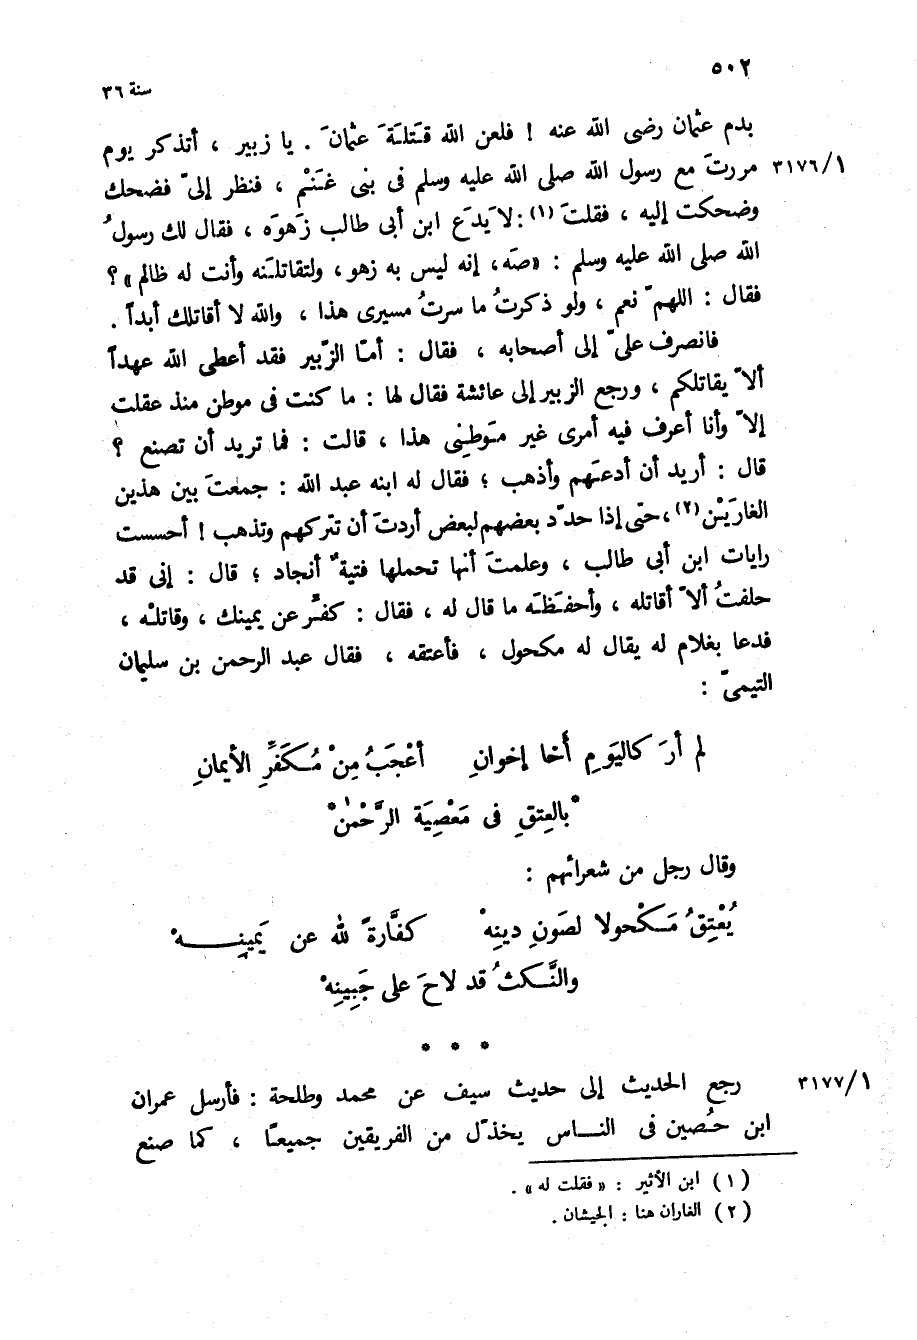 ٥٠٢
سنة ٣٦
بدم عثمان رضى الله عنه ! فلعن الله قتَلةَ عثمانَ . يا زبير ، أتذكر يوم
٣١٧٦/١ مررتَ مع رسول الله صلى الله عليه وسلم فى بنى غَنْم ، فنظر إلىّ فضحك
وضحكت إليه ، فقلتَ (١) : لا يَدَع ابن أبى طالب زَهوَه ، فقال لك رسولُ
الله صلى الله عليه وسلم : «صَه، إنه ليس به زهو ، ولتقاتلنّه وأنت له ظالم» ؟
فقال : اللهمّ نعم ، ولو ذكرتُ ما سرتُ مسيرى هذا ، والله لا أقاتلك أبداً .
فانصرف علىّ إلى أصحابه ، فقال : أمّا الزّبير فقد أعطى الله عهداً
ألاّ يقاتلكم ، ورجع الزبير إلى عائشة فقال لها : ما كنت فى موطن منذ عقلت
إلاّ وأنا أعرف فيه أمرى غير مَوطِنى هذا ، قالت : فما تريد أن تصنع ؟
قال : أريد أن أدعَهم وأذهب ؛ فقال له ابنه عبد الله : جمعتَ بين هذين
الغارَيْن (٢) ، حتى إذا حدّد بعضهم لبعض أردتَ أن تتركهم وتذهب ! أحسست
رايات ابن أبى طالب ، وعلمتَ أنها تحملها فتيةٌ أنجاد ؛ قال : إنى قد
حلفتُ ألاّ أقاتله ، وأحفَظَه ما قال له ، فقال : كفِّر عن يمينك ، وقاتلْه ،
فدعا بغلام له يقال له مكحول ، فأعتقه ، فقال عبد الرحمن بن سليمان
التيمىّ :
لم أرَ كاليَومِ أَخا إخوانِ    أعْجَبُ مِنْ مُكَفِّرِ الأيمانِ
* بالعِتقِ فى مَعْصِيَة الرَّحْمٰنِ *
وقال رجل من شعرائهم :
يُعْتِقُ مَكْحولا لصَونِ دينِهْ    كفَّارةً لله عن يَمينِهْ
والنَّكثُ قد لاحَ على جَبِينِهْ
* * *
٣١٧٧/١ رجع الحديث إلى حديث سيف عن محمد وطلحة : فأرسل عمران
ابن حُصين فى الناس يخذّل من الفريقين جميعًا ، كما صنع
(١) ابن الأثير : «فقلت له» .
(٢) الغاران هنا : الجيشان .